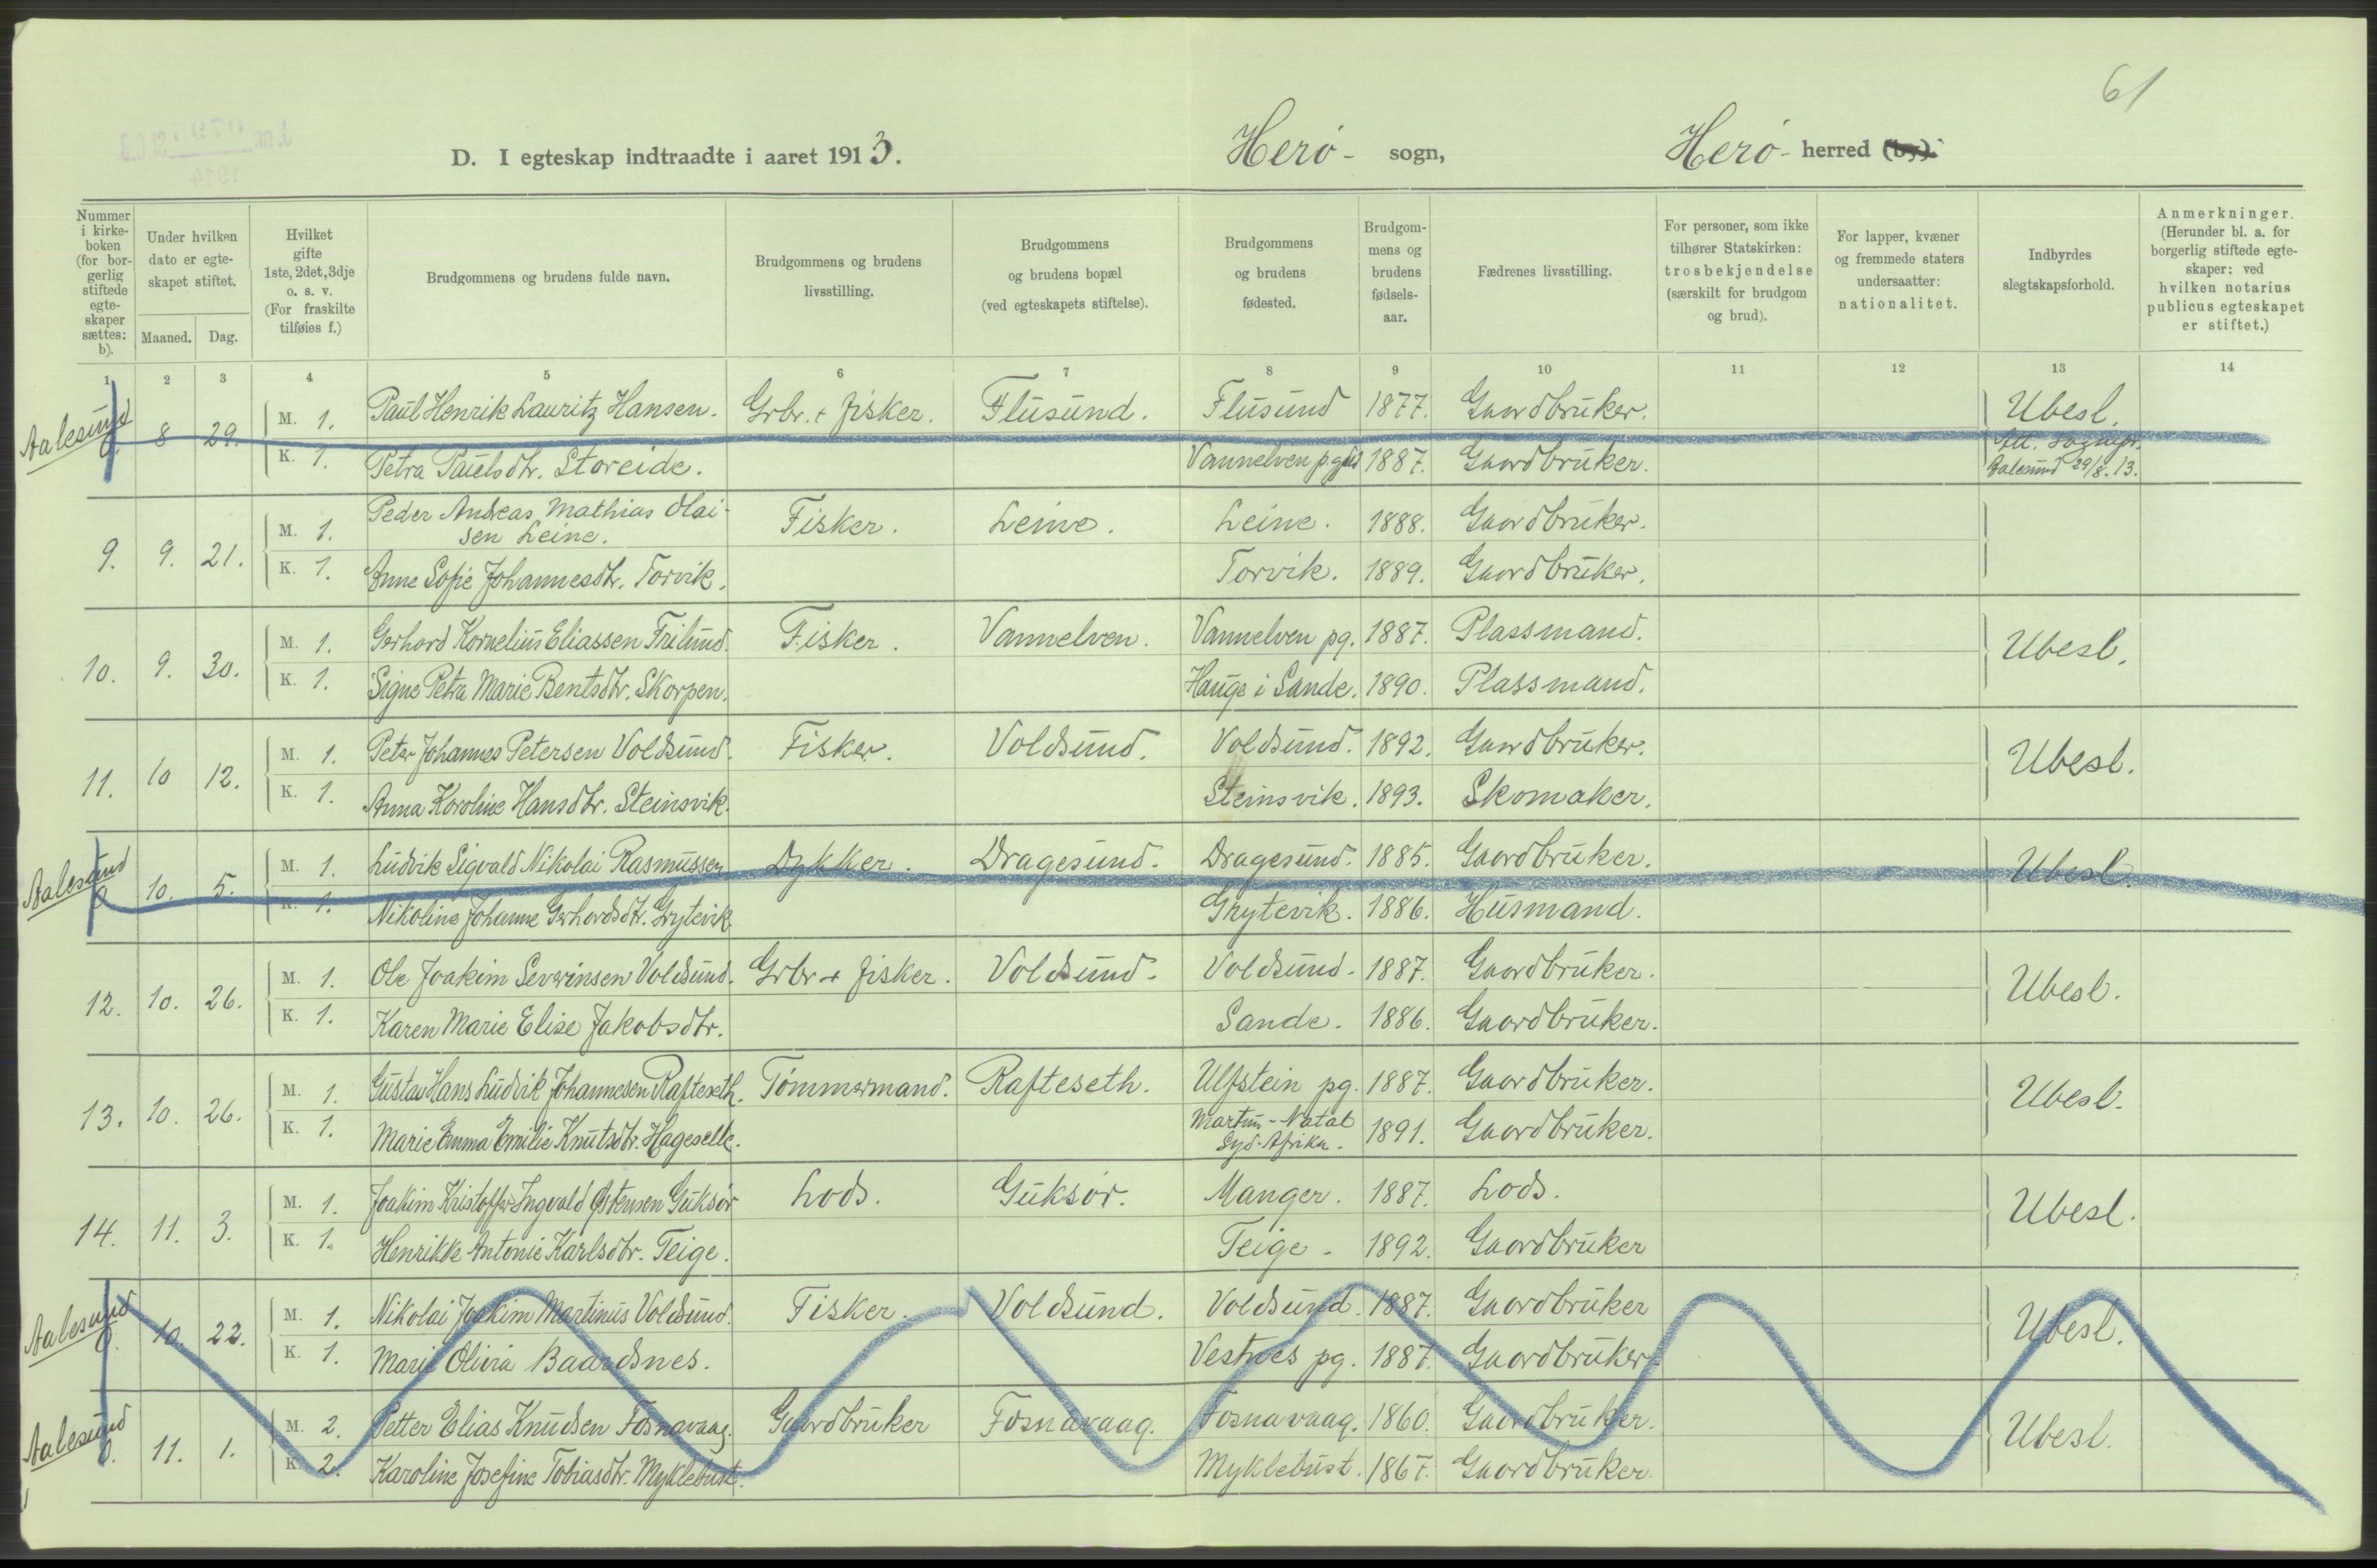 61
D. I egteskap indtraadte i aaret 1913. Herö- sogn, Herö- herred (by).
J.nr. 079 St.C.B
1914
Nummer i kirkeboken (for borgerlig stiftede egteskaper sættes: b).
Under hvilken dato er egteskapet stiftet.
Maaned. Dag.
Hvilket gifte 1ste, 2det, 3dje o. s. v. (For fraskilte tilføies f.)
Brudgommens og brudens fulde navn.
Brudgommens og brudens livsstilling.
Brudgommens og brudens bopæl (ved egteskapets stiftelse).
Brudgommens og brudens fødested.
Brudgommens og brudens fødselsaar.
Fædrenes livsstilling.
For personer, som ikke tilhører Statskirken: trosbekjendelse (særskilt for brudgom og brud).
For lapper, kvæner og fremmede staters undersaatter: nationalitet.
Indbyrdes slegtskapsforhold.
Anmerkninger. (Herunder bl. a. for borgerlig stiftede egteskaper: ved hvilken notarius publicus egteskapet er stiftet.)
1 2 3 4 5 6 7 8 9 10 11 12 13 14
Aalesund 0. 8 29. M. 1. Paul Henrik Lauritz Hansen. Grbr. + fisker. Flusund. Flusund 1877. Gaardbruker. Ubesl.
K. 1. Petra Paulsdtr. Storeide. Vannelven p.gjld 1887. Gaardbruker. Att. sognepr.
Aalesund 29/8. 13.
9. 9. 21. M. 1. Peder Andreas Mathias Olai-
sen Leine. Fisker. Leine. Leine. 1888. Gaardbruker.
K. 1. Anne Sofie Johannesdtr. Torvik. Torvik. 1889. Gaardbruker.
10. 9. 30. M. 1. Gerhard Kornelius Eliassen Frilund. Fisker. Vannelven. Vannelven pg. 1887. Plassmand. Ubesl.
K. 1. Signe Petra Marie Bentsdtr. Skorpen. Hauge i Sande. 1890. Plassmand.
11. 10 12. M. 1. Peter Johannes Petersen Voldsund. Fisker. Voldsund. Voldsund. 1892. Gaardbruker. Ubesl.
K. 1. Anna Karoline Hansdtr. Steinsvik. Steinsvik. 1893. Skomaker.
Aalesund 0 10. 5. M. 1. Ludvik Sigvald Nikolai Rasmussen Dykker. Dragesund. Dragesund. 1885. Gaardbruker. Ubesl.
K. 1. Nikoline Johanne Gerhardsdtr. Grytevik. Grytevik. 1886. Husmand.
12. 10. 26. M. 1. Ole Joakim Severinsen Voldsund. Grbr + fisker. Voldsund. Voldsund. 1887. Gaardbruker. Ubesl.
K. 1. Karen Marie Elise Jakobsdtr. Sande. 1886. Gaardbruker.
13. 10. 26. M. 1. Gustav Hans Ludvik Johannesen Rafteseth. Tömmermand. Rafteseth. Ulfstein pg. 1887. Gaardbruker. Ubesl.
K. 1. Marie Emma Emilie Knutsdtr. Hageselle. Martun - Natal
Syd-Afrika. 1891. Gaardbruker.
14. 11. 3. M. 1. Joakim Kristoffer Ingvald Østensen Guksör Lods. Guksör. Manger. 1887. Lods. Ubesl.
K. 1. Henrikke Antonie Karlsdtr. Teige. Teige. 1892. Gaardbruker
Aalesund 0. 10. 22. M. 1. Nikolai Joakim Martinus Voldsund. Fisker. Voldsund. Voldsund. 1887. Gaardbruker Ubesl.
K. 1. Marie Olivia Baardsnes. Vestnes pg. 1887. Gaardbruker.
Aalesund 0. 11. 1. M. 2. Petter Elias Knudsen Fosnavaag. Gaardbruker Fosnavaag. Fosnavaag. 1860. Gaardbruker. Ubesl.
K. 2. Karoline Josefine Tobiasdtr. Myklebust. Myklebust. 1867. Gaardbruker.